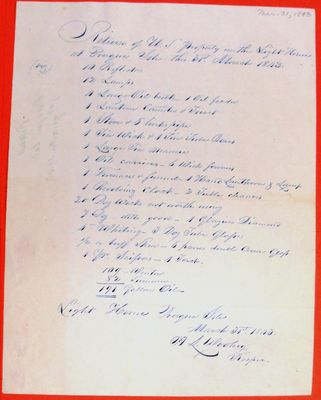 Mar. 31, 1843
Return of U.S. property in the Light House
at Presque Isle this 31st March 1843.
14 Reflectors
12 Lamps
4 Large Oil butts - 1 Oil feeder
1 Lantern Canister & Trivet
1 Stove & 5 lenks pipe
1 Tin Wick & 1 Tin Tube Boxes
1 Large Tin Measure
1 Oil carrier - 6 Wick formers
1 Furnace & funnel - 1 Hand Lanthorn & Lamp
1 Revolving Clock - 2 Tube cleaners
20 Doz Wicks not worth using
7 Doz ditto good - 1 Glaziers Diamond
Whiting - 3 Doz Tube Glasses
a buff Skin - 4 panes double Crown Glass
1 pr Scissors - 1 Torch.
109 - Winter
82 Summer
191 Gallons Oil
Light House Presque Isle
March 31st 1843.
Keeper